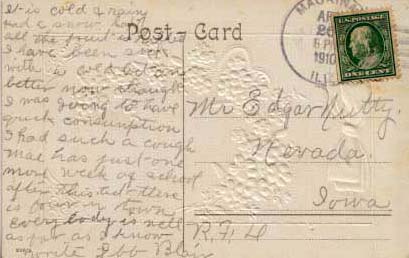 It is cold & rainy
had a snow here
all the fruit is killed
I have been sick
with a cold but am
better now thought
I was going to have
quick consumption
I had such a cough
Mae has just one
more week of school
after this
is town
Everybody is well
as far as I know
write Ebb Blair
Post-Card
26
PM
1910
ILL
U.S. POSTAGE
ONE CENT
Mr Edgar Nutty
Nevada.
Iowa
R.F.D